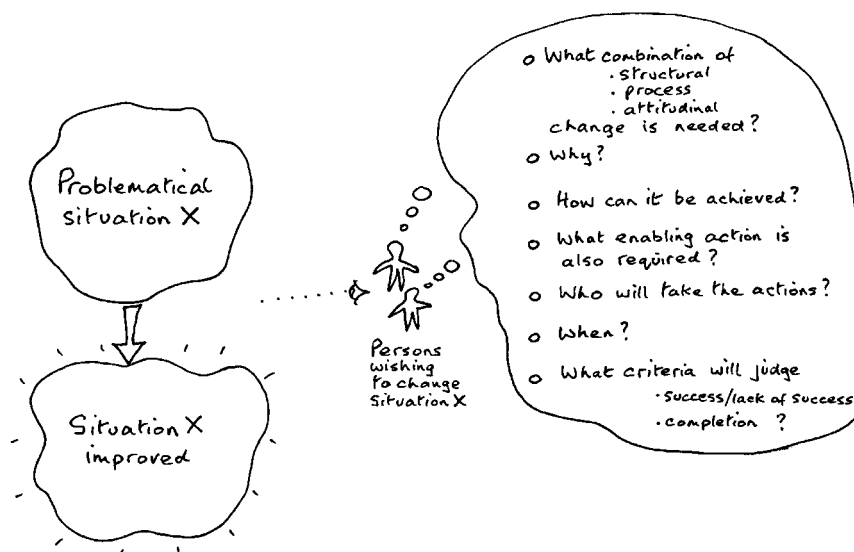 Problematical
situation X
Situation X
improved
Persons
wishing
to change
Situation X
What combination of
· structural
· process
· attitudinal
change is needed?
Why?
How can it be achieved?
What enabling action is
also required?
Who will take the actions?
When?
What criteria will judge
· success/lack of success
· completion ?